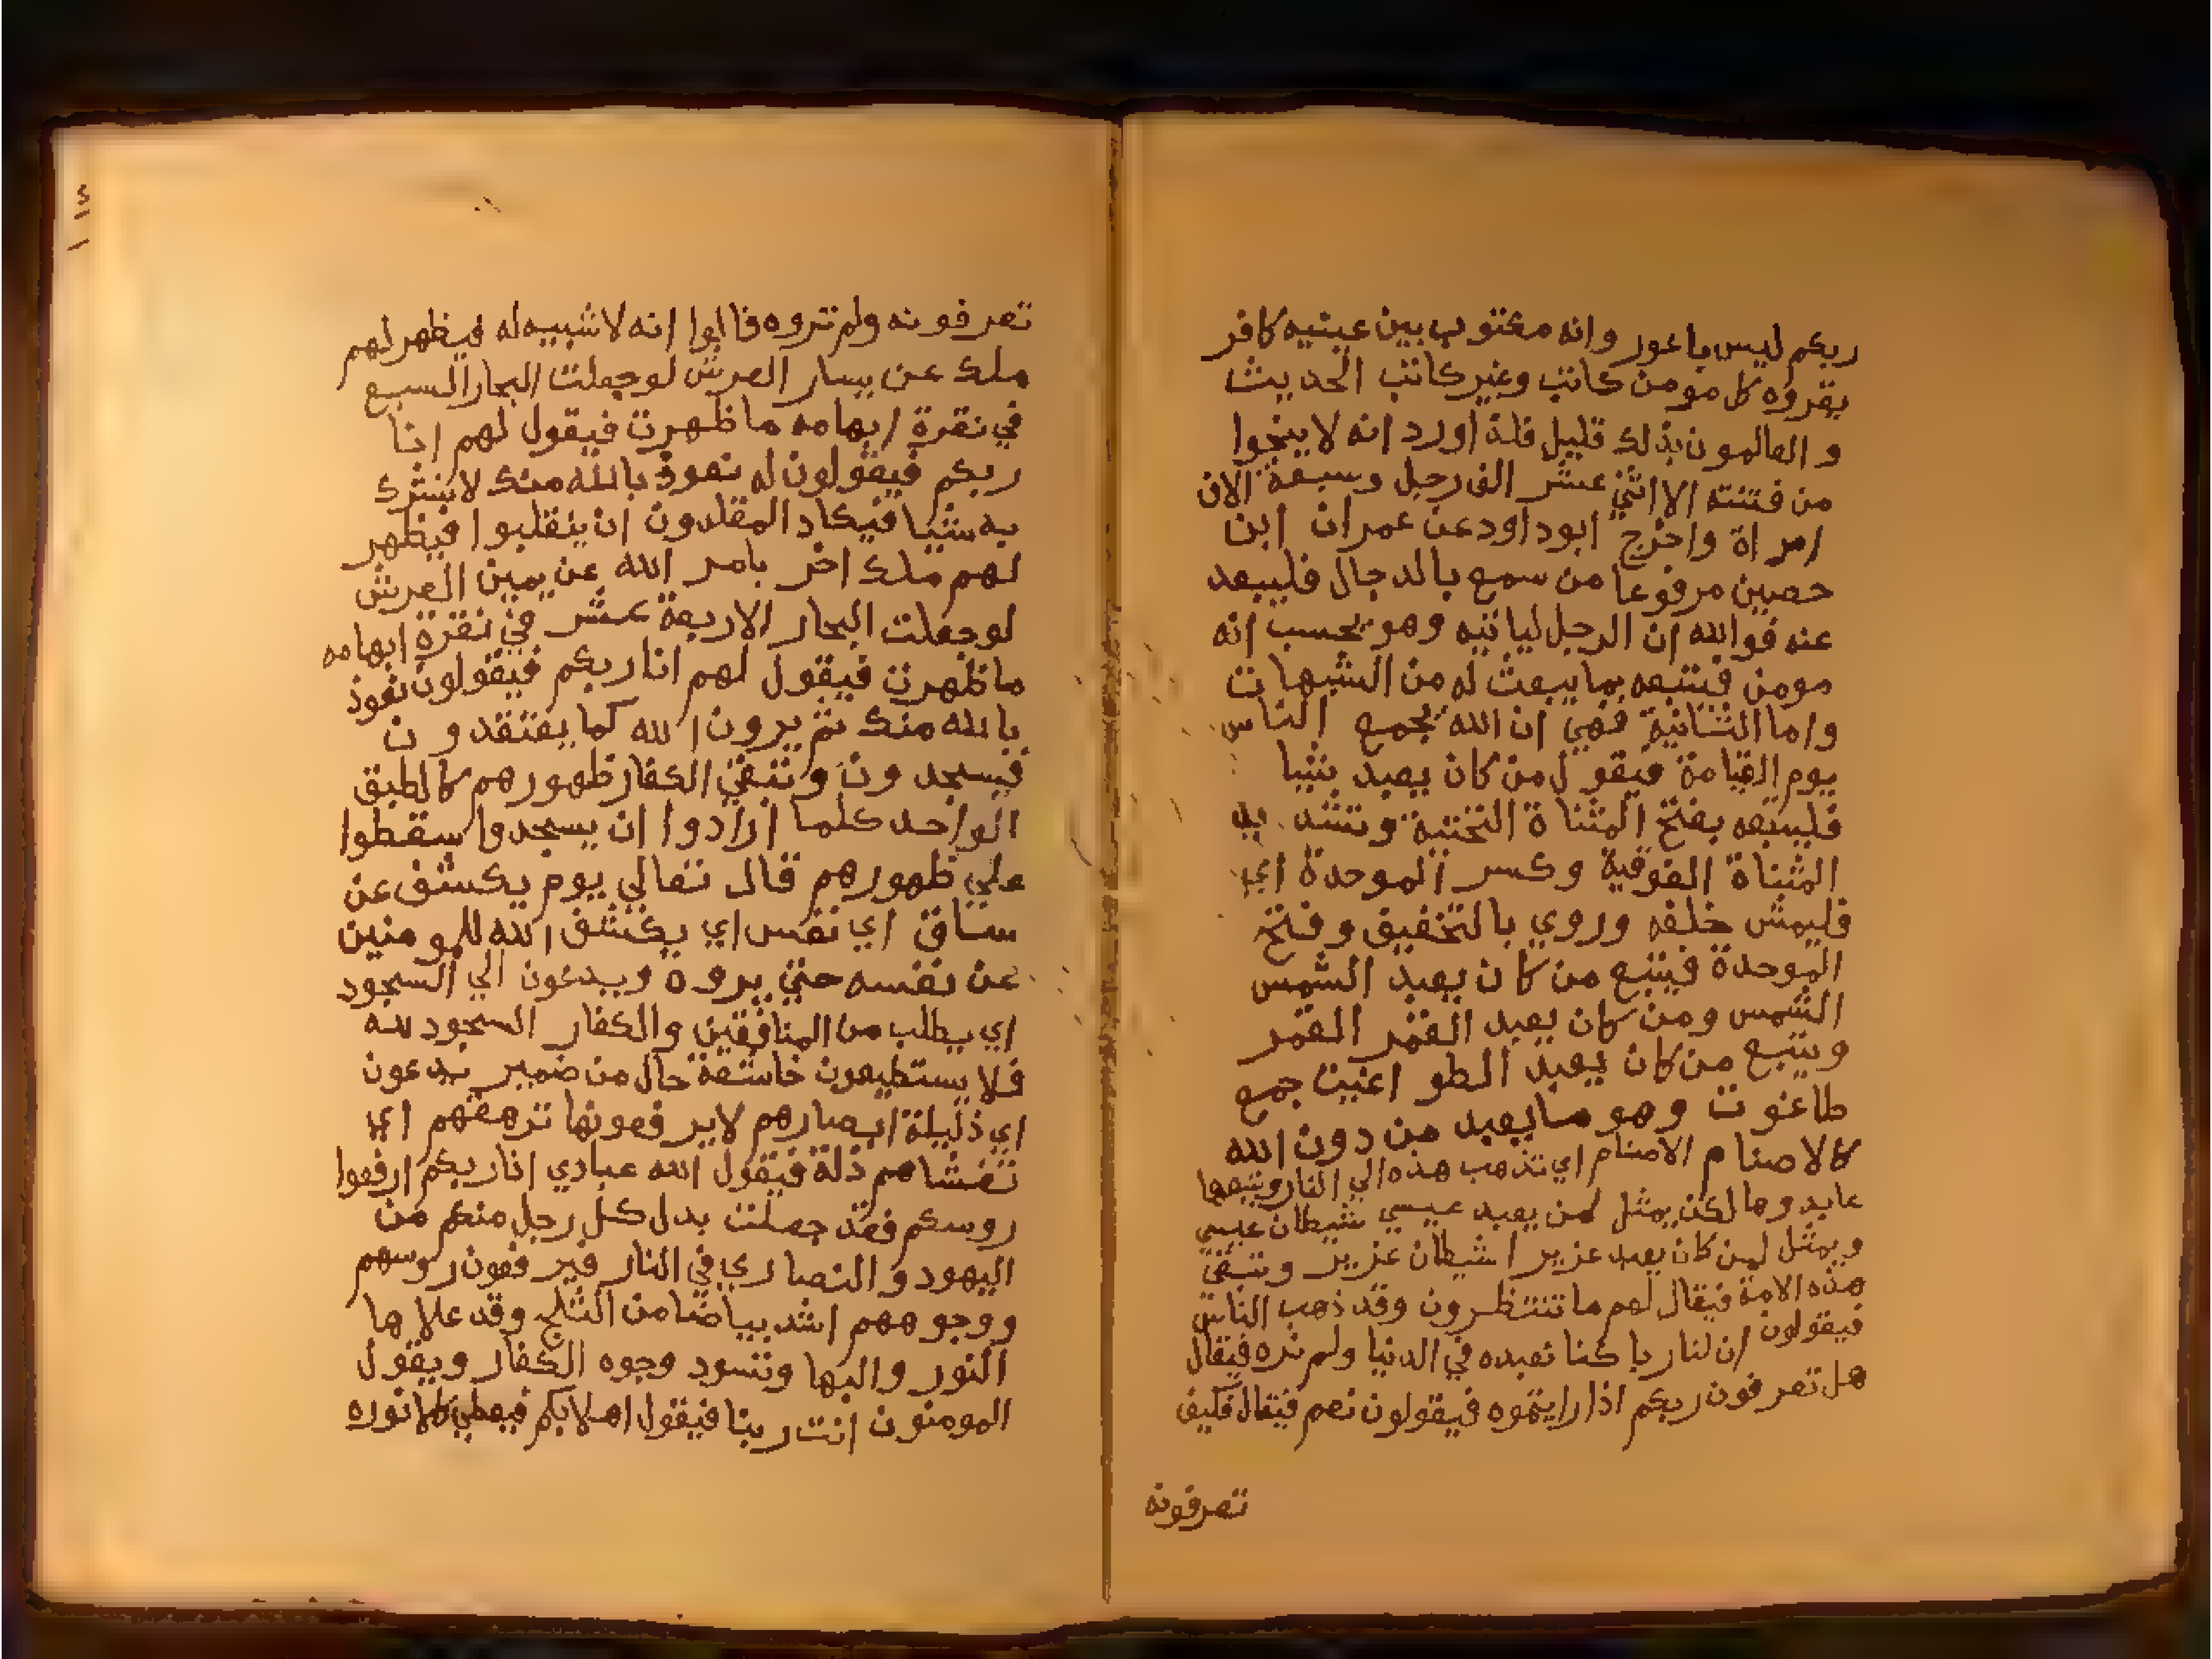 ربكم ليس باعور وانه مكتوب بين عينيه كافر
يقروه كل مومن كاتب وغير كاتب الحديث
والعالمون بذلك قليل فلذا ورد انه لا ينجوا
من فتنته الا اثني عشر الف رجل وسبعة الاف
امراة واخرج ابوداود عن عمران ابن
حصين مرفوعا من سمع بالدجال فليبعد
عنه فوالله ان الرجل لياتيه وهو يحسب انه
مومن فيتبعه بما يبعث له من الشبهات
واما الثانية فهي ان الله يجمع الناس
يوم القيامة فيقول من كان يعبد شيا
فليتبعه بفتح المثناة التحتية وتشديد
المثناة الفوقية وكسر الموحدة اي
فليمش خلفه وروي بالتخفيف وفتح
الموحدة فيتبع من كان يعبد الشمس
الشمس ومن كان يعبد القمر القمر
ويتبع من كان يعبد الطواغيت جمع
طاغوت وهو ما يعبد من دون الله
كالاصنام الاصنام اي تذهب هذه الي النار ويتبعها
عابدوها لكن يمثل لمن يعبد عيسي شيطان عيسي
ويمثل لمن كان يعبد عزيرا شيطان عزير وتبقي
هذه الامة فيقال لهم ما تنتظرون وقد ذهب الناس
فيقولون ان لنا ربا كنا نعبده في الدنيا ولم نره فيقال
هل تعرفون ربكم اذا رايتموه فيقولون نعم فيقال فكيف
تعرفونه
تعرفونه ولم تروه قالوا انه لا شبيه له فيظهر لهم
ملك عن يسار العرش لو جعلت البحار السبع
في نقرة ابهامه ما ظهرت فيقول لهم انا
ربكم فيقولون له نعوذ بالله منك لا نشرك
به شيا فيكاد المقلدون ان ينقلبوا فيظهر
لهم ملك اخر بامر الله عن يمين العرش
لو جعلت البحار الاربعة عشر في نقرة ابهامه
ما ظهرت فيقول لهم انا ربكم فيقولون نعوذ
بالله منك ثم يرون الله كما يعتقدون
فيسجدون وتبقي الكفار ظهورهم كالطبق
الواحد كلما ارادوا ان يسجدوا سقطوا
علي ظهورهم قال تعالي يوم يكشف عن
ساق اي نفس اي يكشف الله للمومنين
عن نفسه حتي يروه ويدعون الي السجود
اي يطلب من المنافقين والكفار السجود لله
فلا يستطيعون خاشعة حال من ضمير يدعون
اي ذليلة ابصارهم لا يرفعونها ترهقهم اي
تغشاهم ذلة فيقول الله عبادي انا ربكم ارفعوا
روسكم فقد جعلت بدل كل رجل منكم من
اليهود والنصاري في النار فيرفعون روسهم
ووجوههم اشد بياضا من الثلج وقد علاها
النور والبها وتسود وجوه الكفار ويقول
المومنون انت ربنا فيقول اهلا بكم فيعطي نوره